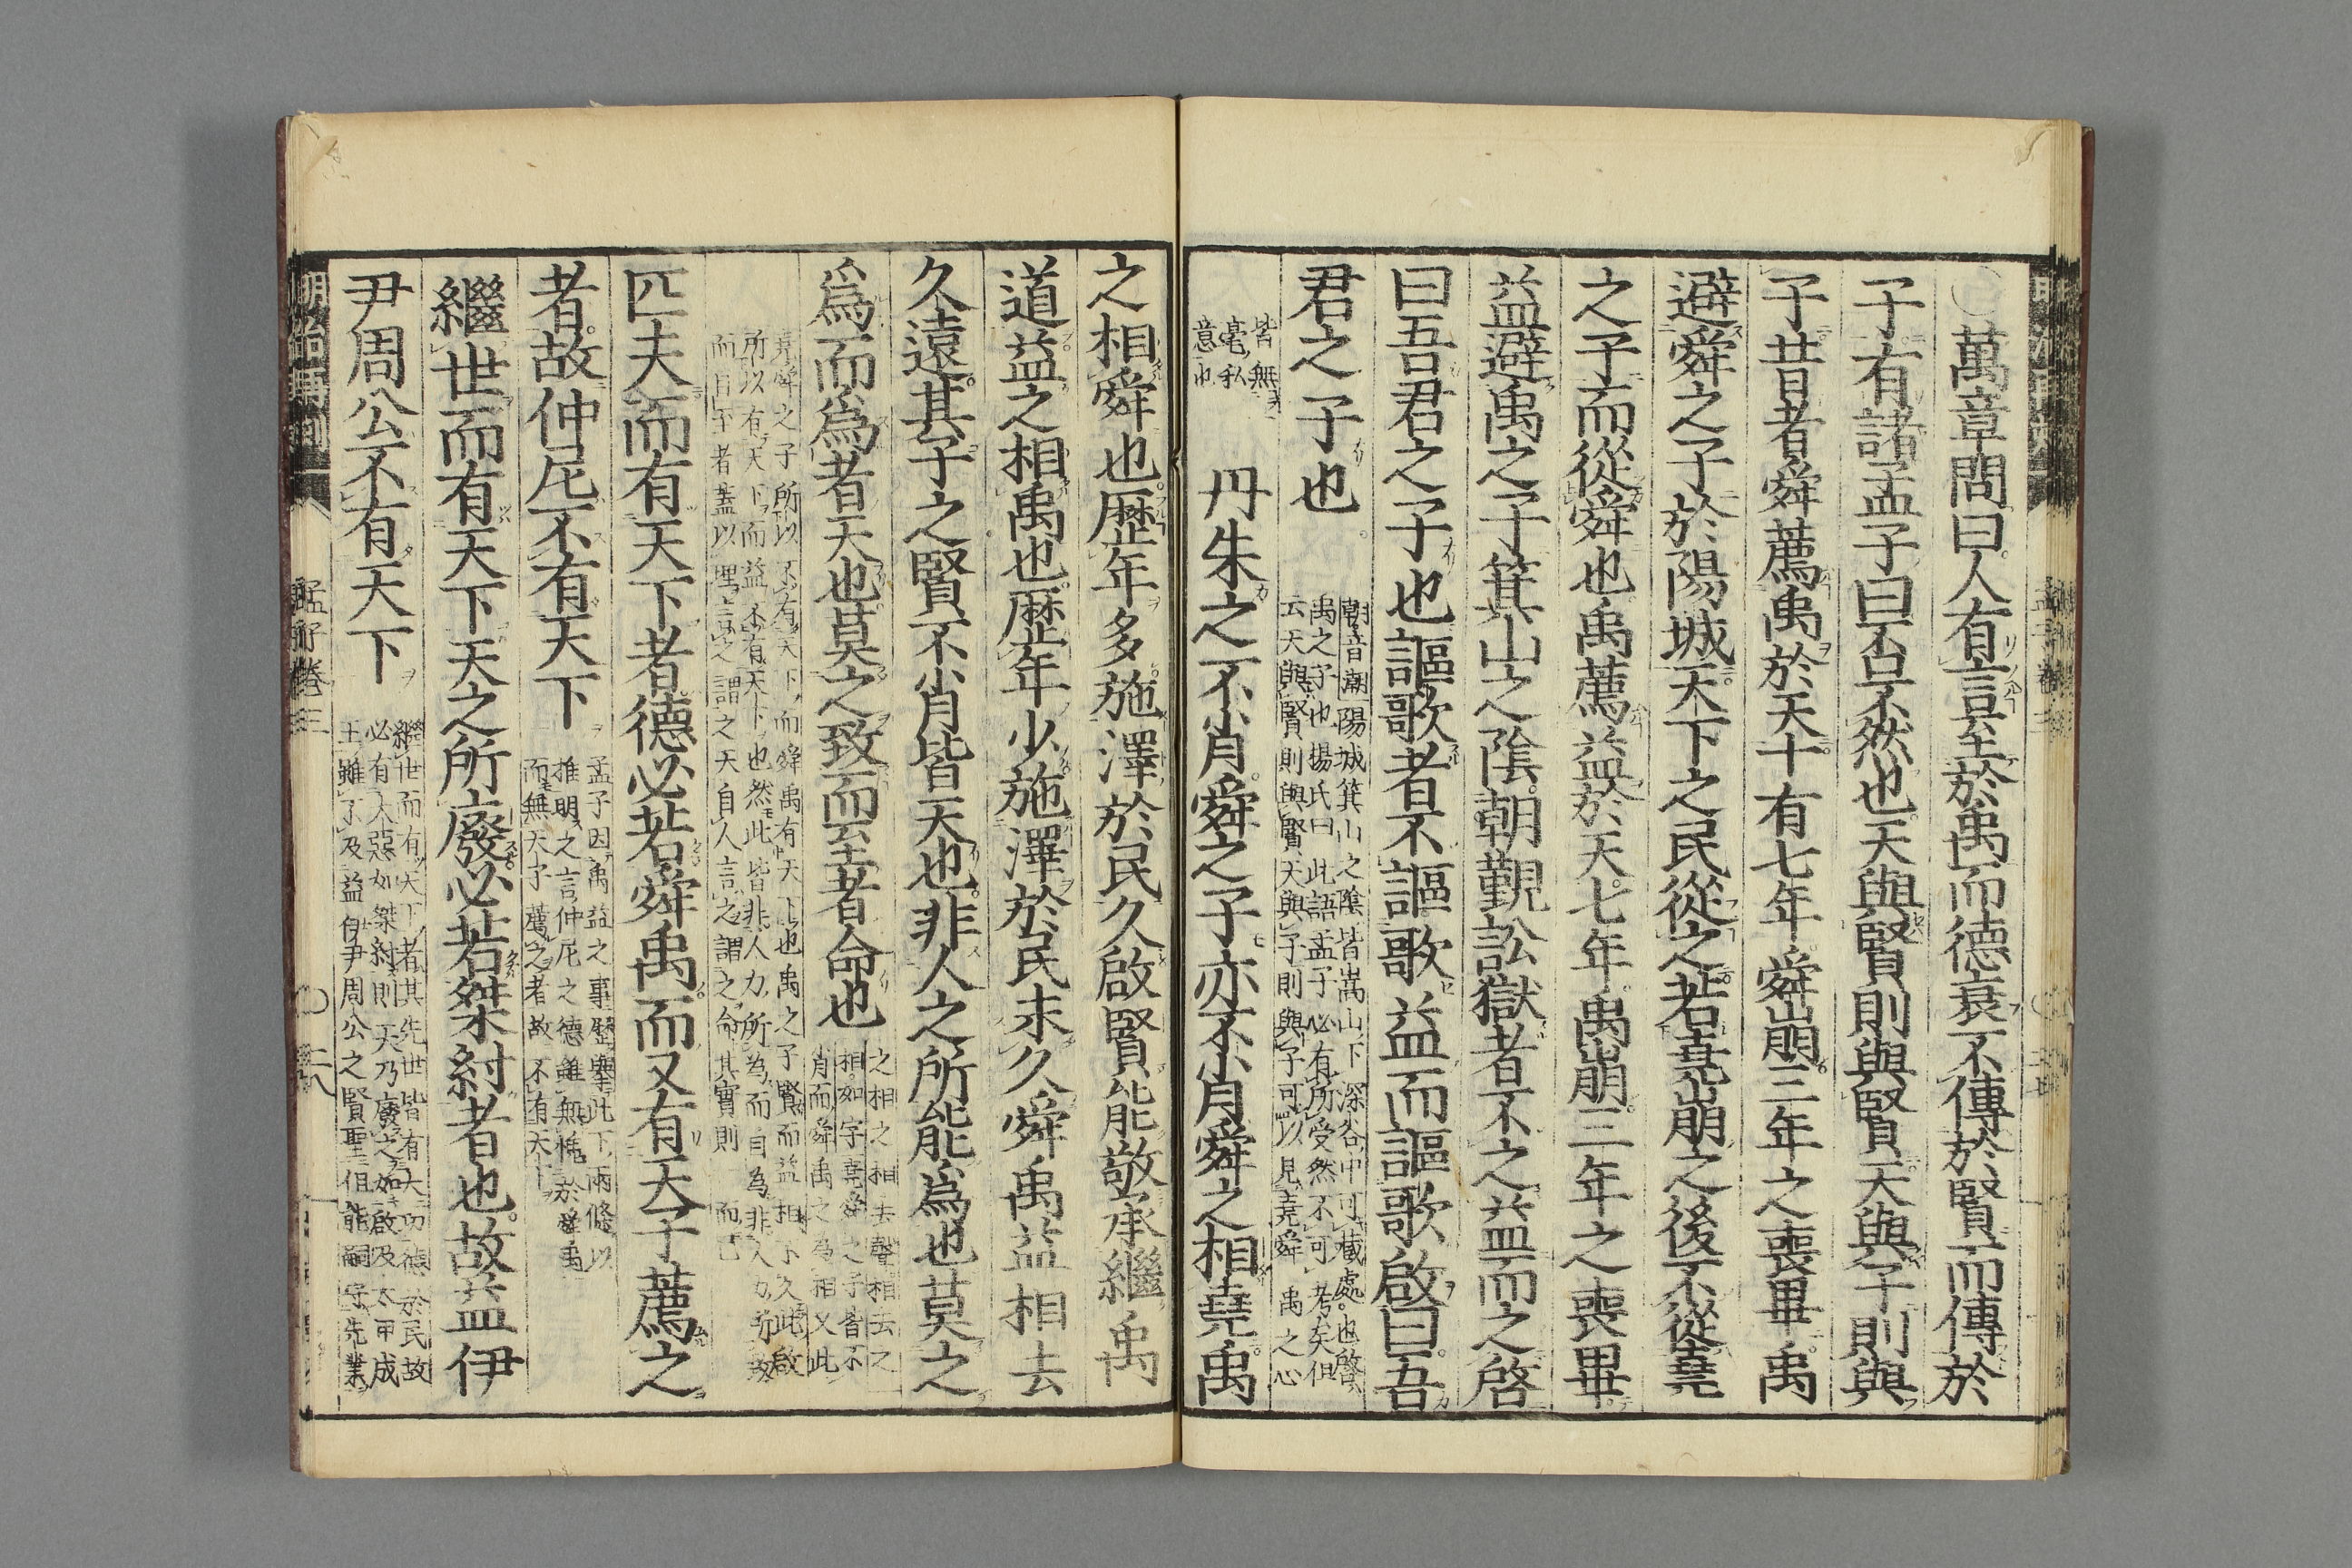 萬章問曰人有言至於禹而德衰不傳於賢而傳於
子有諸孟子曰否不然也天與賢則與賢天與子則與
子昔者舜薦禹於天十有七年舜崩三年之喪畢禹
避舜之子於陽城天下之民從之若堯崩之後不從堯
之子而從舜也禹薦益於天七年禹崩三年之喪畢
益避禹之子箕山之陰朝覲訟獄者不之益而之啓
曰吾君之子也謳歌者不謳歌益而謳歌啟曰吾
君之子也
朝音潮陽城箕山之陰皆嵩山下深谷中可藏處也啟
禹之子也楊氏曰此語孟子必有所受然不可考矣但
云天與賢則與賢天與子則與子可以見堯舜禹之心
皆無
毫私
意也
丹朱之不肖舜之子亦不肖舜之相堯禹
之相舜也歷年多施澤於民久啟賢能敬承繼禹
道益之相禹也歷年少施澤於民未久舜禹益相去
久遠其子之賢不肖皆天也非人之所能爲也莫之
爲而爲者天也莫之致而至者命也
之相之相去聲相去之
相如字堯舜之子皆不
肖而舜禹之為相久此
堯舜之子所以不有天下而舜禹有天下也禹之子賢而益相不久此啟
所以有天下而益不有天下也然此皆非人力所為而自為非人力所致
而自至者蓋以理言之謂之天自人言之謂之命其實則而已
匹夫而有天下者德必若舜禹而又有天子薦之
者故仲尼不有天下
孟子因禹益之事歷舉此下兩條以
推明之言仲尼之德雖無愧於舜禹
而無天子薦之者故不有天下
繼世而有天下天之所廢必若桀紂者也故益伊
尹周公不有天下
繼世而有天下者其先世皆有大功德於民故
必有大惡如桀紂則天乃廢之如啟及太甲成
王雖不及益伊尹周公之賢聖但能嗣守先業
孟子卷三